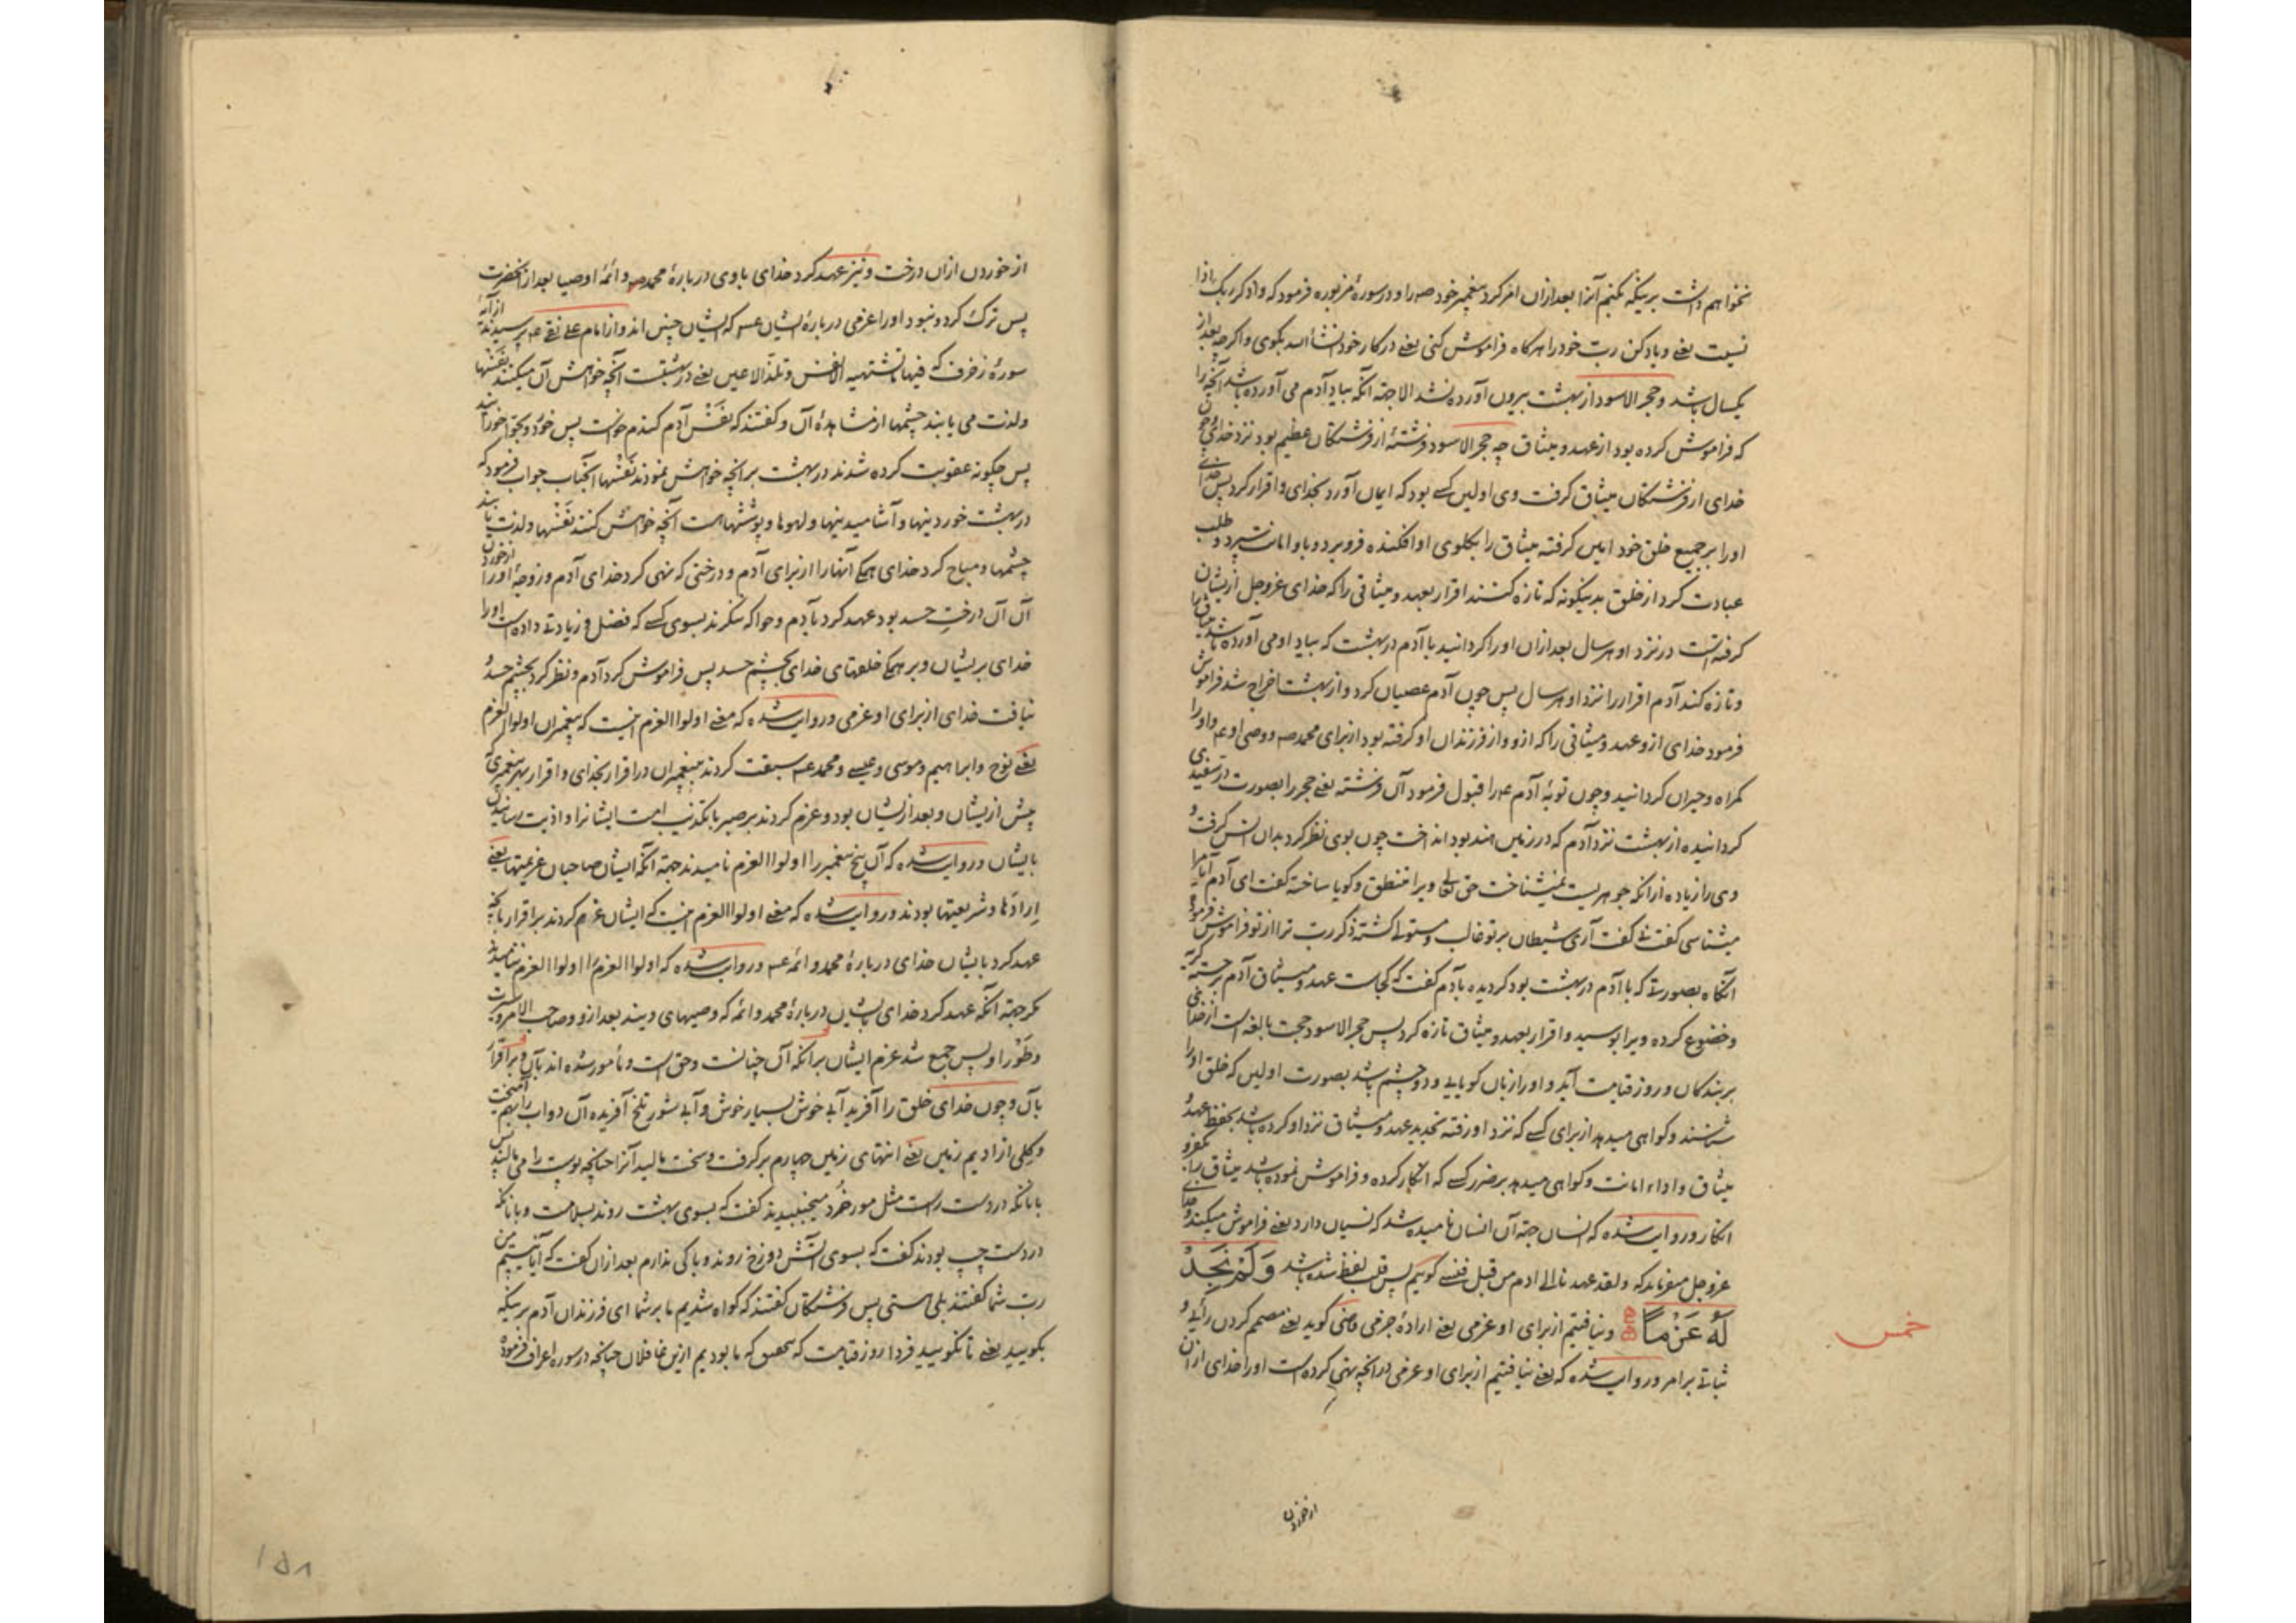 نخواهم داشت بر اینکه نکنم آنرا بعد ازان امر کرد پیغمبر خود صه را و در سورهٔ مزبوره فرمود که واذکر ربک اذا
نسیت یعنی و یاد کن رب خود را هرگاه فراموش کنی یعنی در کار خود انشأ الله بگوی و اگرچه بعد از
یکسال باشد و حجر الاسود از بهشت بیرون آورده نشد الا جهة آنکه بیاد آدم می آورده باشد آنچه را
که فراموش کرده بود از عهد و میثاق چه حجر الاسود فرشتهٔ از فرشتگان عظیم بود نزد خدای چون
خدای از فرشتگان میثاق گرفت وی اولین کسی بود که ایمان آورد بخدای و اقرار کرد پس خدای
او را بر جمیع خلق خود امین گرفته میثاق را بگلوی او افکنده فرو برد و باو امانت سپرد و طلب
عبادت کرد از خلق بدینگونه که تازه کنند اقرار بعهد و میثاقی را که خدای عزوجل ازیشان
گرفته است در نزد او هر سال بعد ازان او را گردانید با آدم در بهشت که بیاد او می آورده باشد میثاق را
و تازه کند آدم اقرار را نزد او هر سال پس چون آدم عصیان کرد و از بهشت اخراج شد فراموش
فرمود خدای ازو عهد و میثاقی را که ازو و از فرزندان او گرفته بود از برای محمد صه و وصی او عه و او را
گمراه و حیران گردانید و چون توبهٔ آدم عه را قبول فرمود آن فرشته یعنی حجر را بصورت در سفیدی
گردانیده از بهشت نزد آدم که در زمین هند بود انداخت چون بوی نظر کرد بدان انس گرفت و
وی را زیاده ازانکه جوهریست نمیشناخت حق تعالی ویرا منطق و گویا ساخته گفت ای آدم آیا مرا
میشناسی گفت نی گفت آری شیطان بر تو غالب و مستولی گشته ذکر رب ترا از تو فراموش فرمود
انگاه بصورتی که با آدم در بهشت بود گردیده بآدم گفت که کجاست عهد و میثاق آدم برجسته گریه
و خضوع کرده ویرا بوسید و اقرار بعهد و میثاق تازه کرد پس حجر الاسود حجت بالغه است از خدای
بر بندگان و روز قیامت آید و او را زبان گویایی و دو چشم باشد بصورت اولین که خلق او را
شناسند و گواهی میدهد از برای کسی که نزد او رفته تجدید عهد و میثاق نزد او کرده باشد بحفظ عهد و
میثاق و اداء امانت و گواهی میدهد بر ضرر کسی که انکار کرده و فراموش نموده باشد میثاق را بکفر و
انکار و روایت شده که انسان جهة آن انسان نامیده شد که نسیان دارد یعنی فراموش میکند و خدای
عزوجل میفرماید که ولقد عهدنا الی ادم من قبل فنسی گوئیم پس قلب لفظ شده باشد وَلَمْ نَجِدْ
لَهُ عَزْماً و نیافتیم از برای او عزمی یعنی ارادهٔ جزمی قاضی گوید یعنی مصمم کردن رائی و
ثباتی بر امر و روایت شده که یعنی نیافتیم از برای او عزمی در آنچه نهی کرده است او را خدای ازان
خمس
از خوردن
از خوردن ازان درخت و نیز عهد کرد خدای با وی دربارهٔ محمد صه و ائمهٔ اوصیا بعد از آنحضرت
پس ترک کرد و نبود او را عزمی دربارهٔ ایشان عه که ایشان چنین اند و از امام علی نقی عه پرسیدند از آیهٔ
سورهٔ زخرف که فیها ما تشتهیه الانفس وتلذ الاعین یعنی در بهشتست آنچه خواهش آن میکنند نفسها
ولذت می یابند چشمها از مشاهدهٔ آن و گفتند که نفس آدم گندم خواست پس خود و بحوا خوراند
پس چگونه عقوبت کرده شدند در بهشت بر آنچه خواهش نمودند نفسها آنجناب جواب فرمود که
در بهشت خوردینها و آشامیدنیها و لهوها و پوششهاست آنچه خواهش کنند نفسها و لذت یابند
چشمها و مباح کرد خدای همگی آنها را از برای آدم و درختی که نهی کرد خدای آدم و زوجهٔ او را از خوردن
آن آن درخت حسد بود عهد کرد بآدم و حوا که ننگرند بسوی کسی که فضل و زیادتی داده است او را
خدای بریشان و بر همگی خلقهای خدای بچشم حسد پس فراموش کرد آدم و نظر کرد بچشم حسد و
نیافت خدای از برای او عزمی و روایت شده که معنی اولوا العزم اینست که پیغمبران اولوا العزم
یعنی نوح و ابراهیم و موسی و عیسی و محمد عه سبقت کردند پیغمبران در اقرار بخدای و اقرار بهر پیغمبری که
پیش ازیشان و بعد ازیشان بود و عزم کردند بر صبر با تکذیب امت ایشانرا و اذیت رسانیدن
بایشان و روایت شده که آن پنج پیغمبر را اولوا العزم نامیدند جهة آنکه ایشان صاحبان عزیمتها یعنی
ارادتها و شریعتها بودند و روایت شده که معنی اولوا العزم اینست که ایشان عزم کردند بر اقرار بآنچه
عهد کرد بایشان خدای دربارهٔ محمد و ائمه عه و روایت شده که اولوا العزم را اولوا العزم ننامیدند
مگر جهة آنکه عهد کرد خدای بایشان دربارهٔ محمد و ائمه که وصیهای ویند بعد ازو و صاحب الامر و سیرت
و طَوْر او پس جمع شد عزم ایشان بر آنکه آن چنانست و حق است و مأمور شده اند بآن و بر اقرار
بآن و چون خدای خلق را آفرید آبی خوش بسیار خوش و آبی شور تلخ آفریده آن دو آب را بهم آمیخت
و گلی از ادیم زمین یعنی انتهای زمین چهارم بر گرفت و سخت مالید آنرا چنانچه پوست را می مالند پس
بآنانکه در دست راست مثل مور خُرد میجنبیدند گفت که بسوی بهشت روند بسلامت و بآنانکه
در دست چپ بودند گفت که بسوی آتش دوزخ روند و باکی ندارم بعد ازان گفت که آیا نیستم من
رب شما گفتند بلی هستی پس فرشتگان گفتند که گواه شدیم ما بر شما ای فرزندان آدم بر اینکه
بگویید یعنی تا نگویید فردا روز قیامت که بتحقیق که ما بودیم ازین غافلان چنانچه در سوره اعراف فرموده
۱۵۸